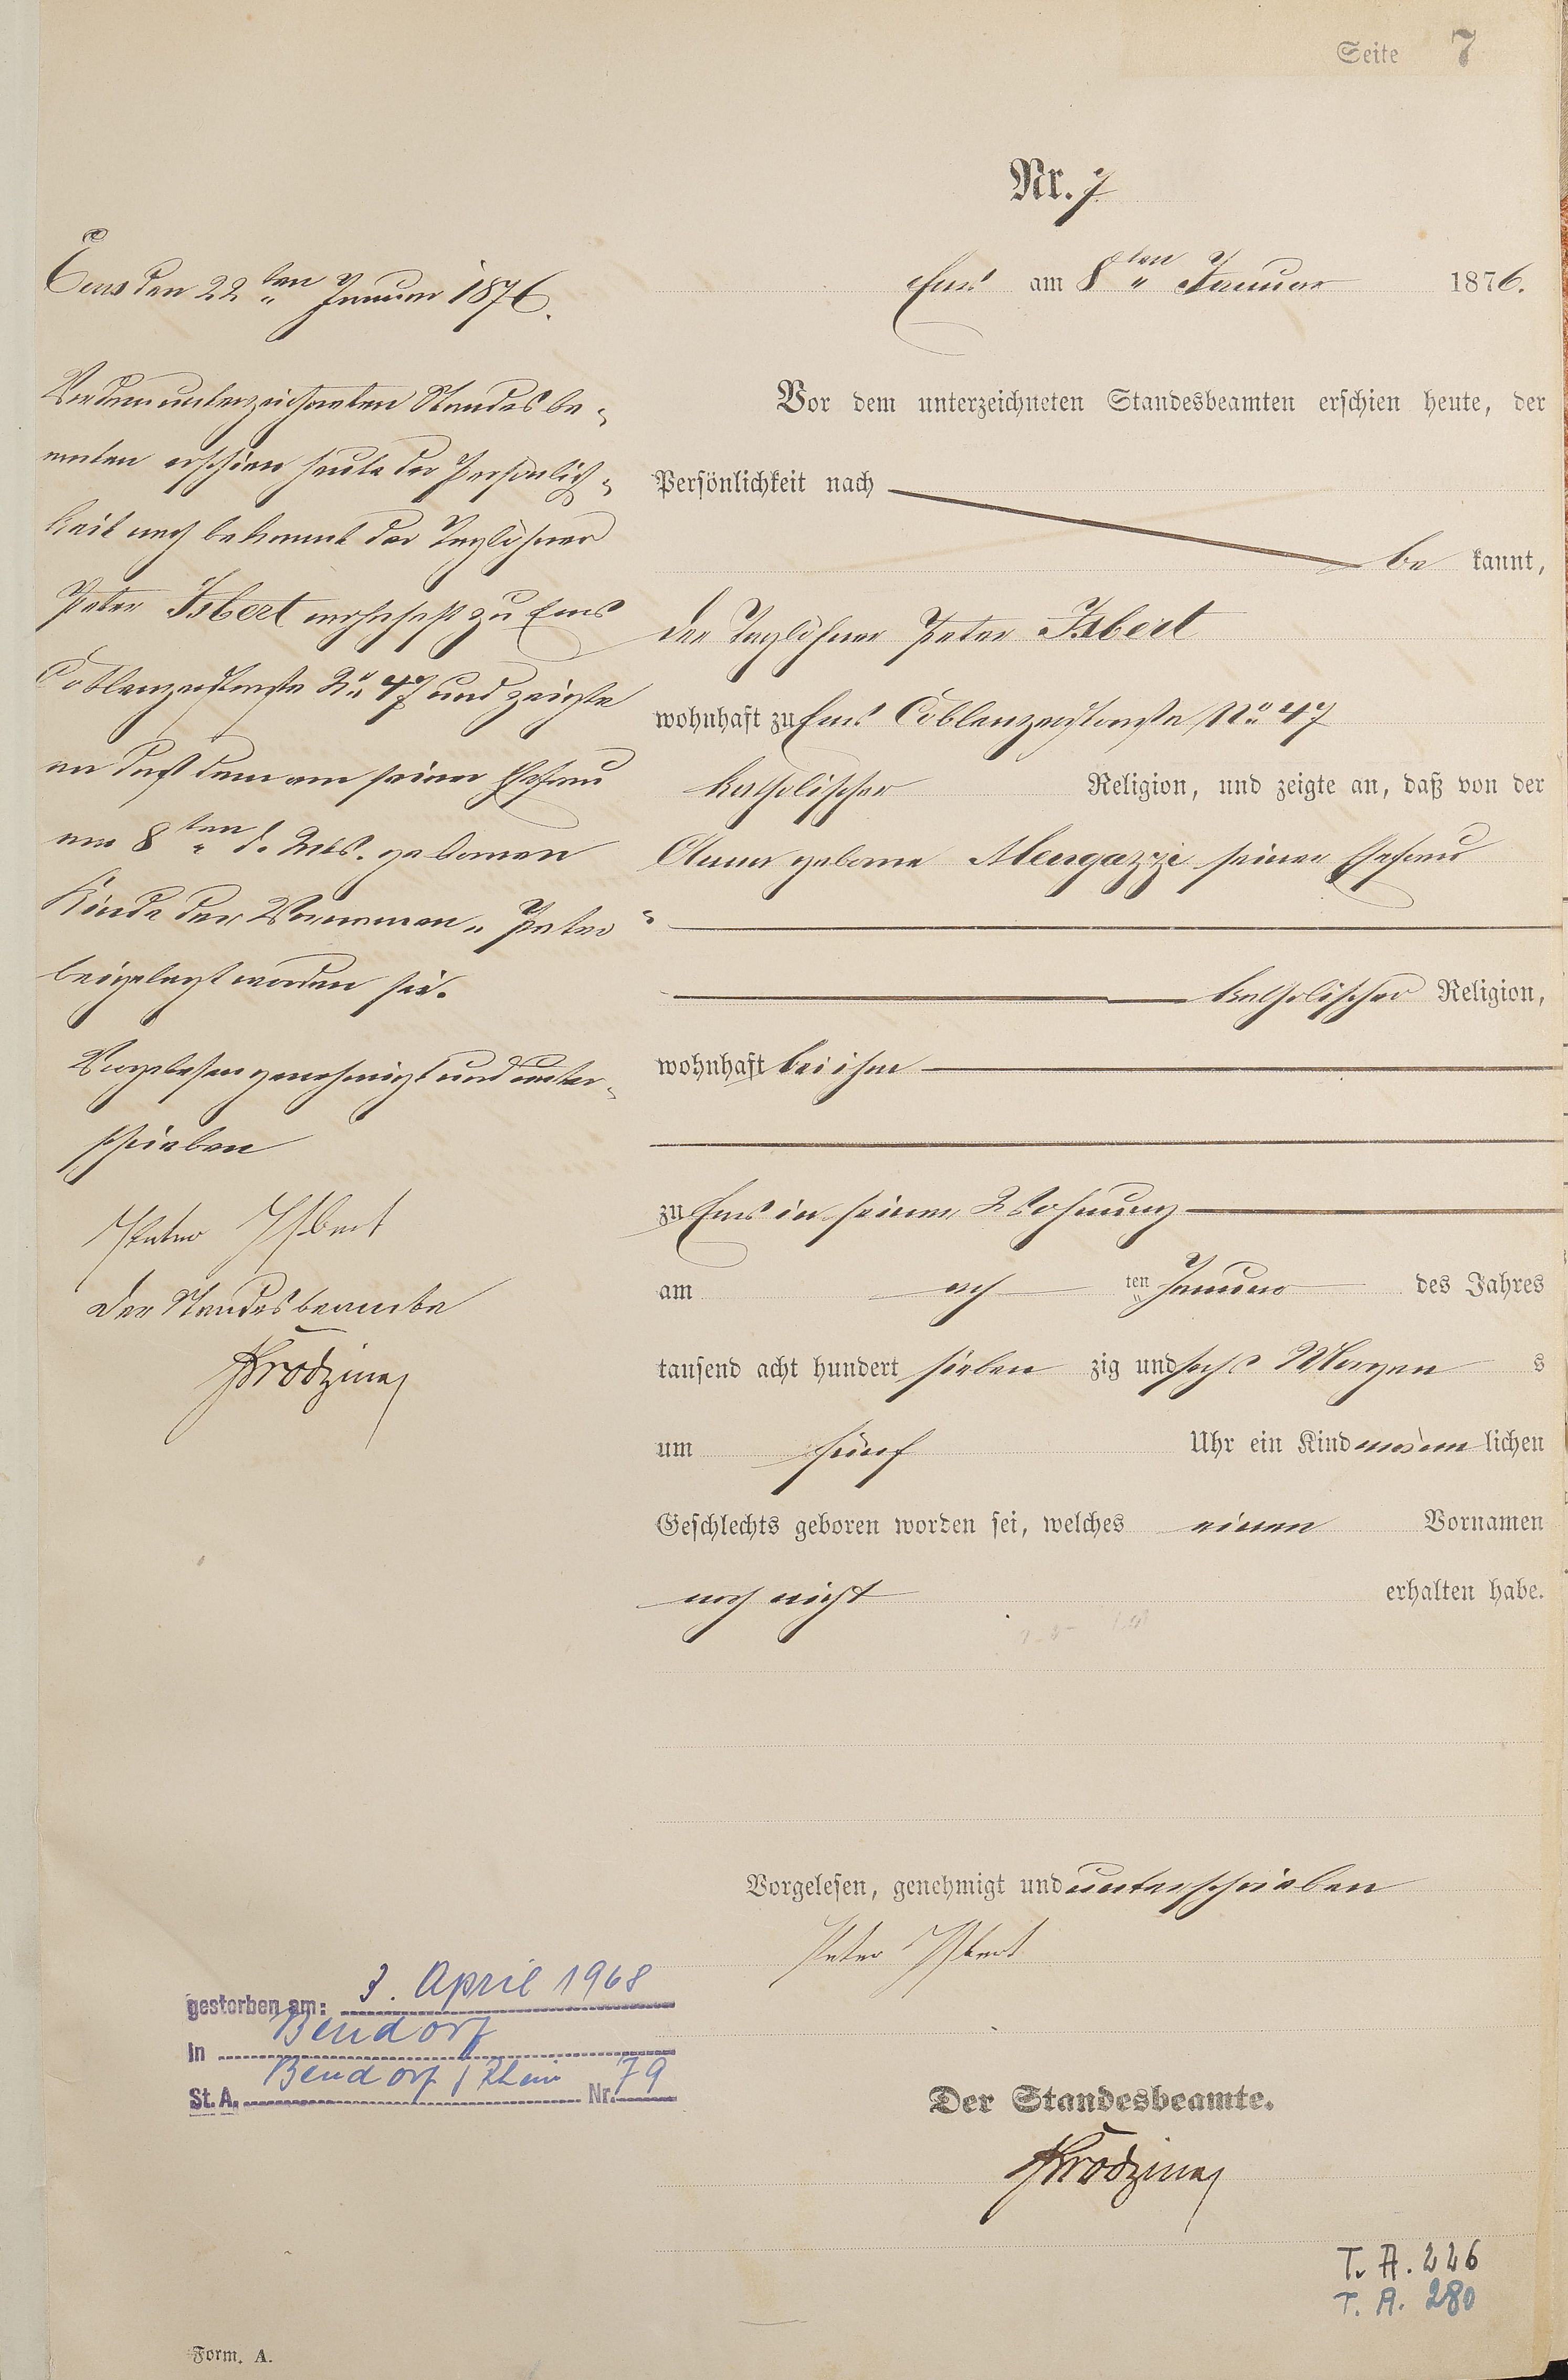 Seite 7
Nr. 7
Ems am 8ten Januar 1876.
Vor dem unterzeichneten Standesbeamten erschien heute, der
Persönlichkeit nach
be kannt,
der Taglöhner Peter Isbert
wohnhaft zu Ems Coblenzerstraße No 47
katholischer Religion, und zeigte an, daß von der
Anna geborne Mengazzi seiner Ehefrau
katholischer Religion,
wohnhaft bei ihm
zu Ems in seiner Wohnung
am acht ten Januar des Jahres
tausend acht hundert sieben zig und sechs Morgen s
um fünf Uhr ein Kind männ lichen
Geschlechts geboren worden sei, welches einen Vornamen
noch nicht erhalten habe.
Vorgelesen, genehmigt und unterschrieben
Peter Isbert
Der Standesbeamte.
Ems den 22ten Januar 1876.
Vor dem unterzeichneten Standesbe-
amten erschien heute der Persönlich-
keit nach bekannt der Taglöhner
Peter Isbert wohnhaft zu Ems
Coblenzerstraße No 47 und zeigte
an daß dem von seiner Ehefrau
am 8ten d. Mts. geborenen
Kinde der Vornamen „Peter“
beigelegt worden sei.
Vorgelesen genehmigt und unter-
schrieben
Peter Isbert
Der Standesbeamte
gestorben am: 3. April 1968
in Bendorf
St. A. Bendorf / Rhein Nr. 79
T. A. 226
T. A. 280
Form. A.